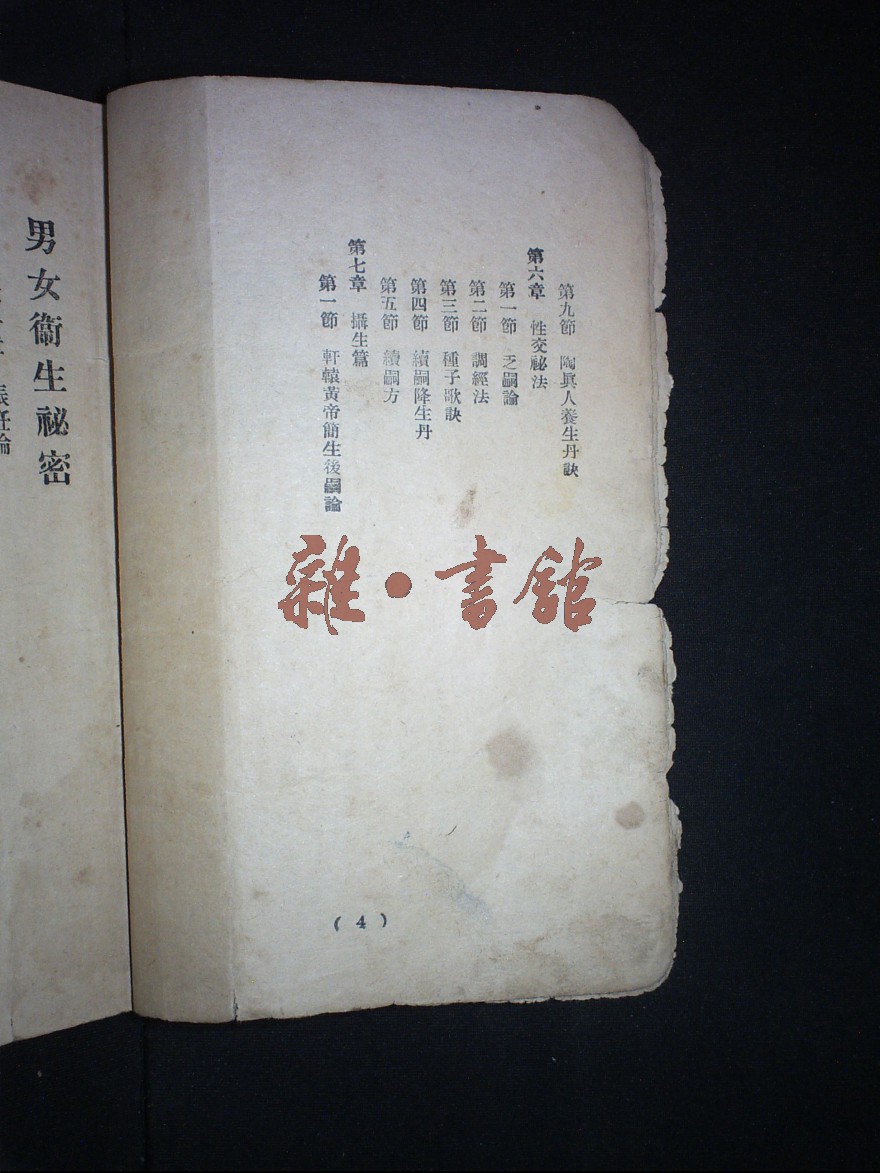 第九節　陶眞人養生丹訣
第六章　性交祕法
第一節　乏嗣論
第二節　調經法
第三節　種子歌訣
第四節　續嗣降生丹
第五節　續嗣方
第七章　攝生篇
第一節　軒轅黃帝簡生後嗣論
(4)
男女衞生祕密
論
雜・書館